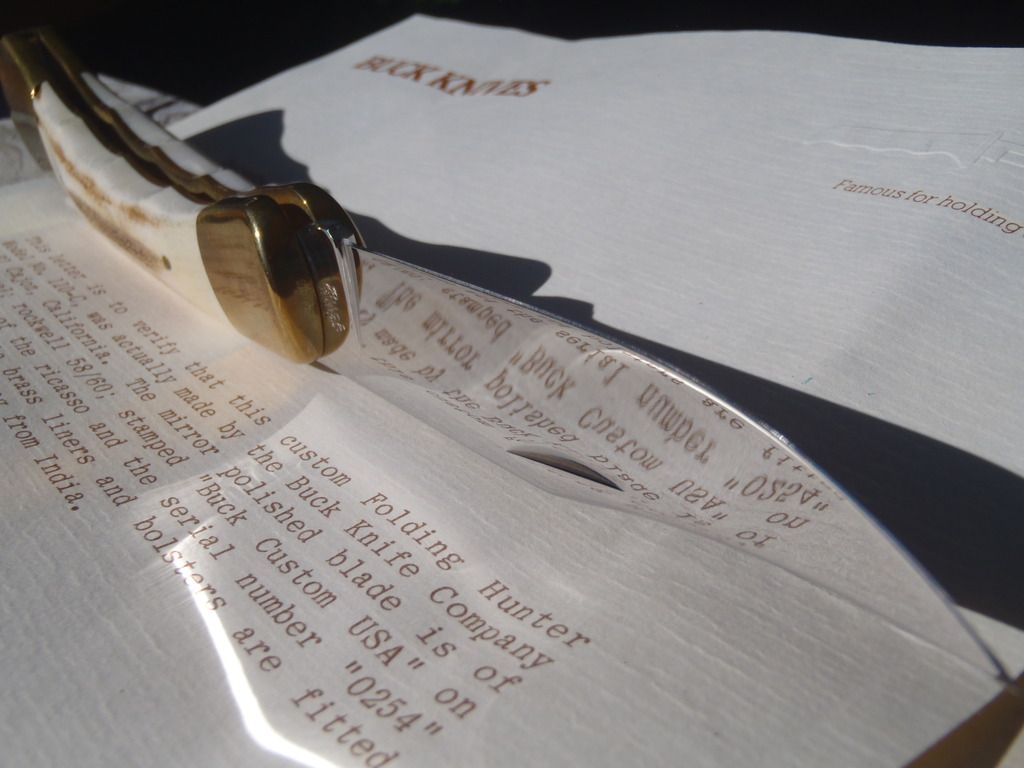 BUCK KNIVES
Famous for holding
This letter is to verify that this custom Folding Hunter
Model No. 110-C, was actually made by the Buck Knife Company
Cajon, California. The mirror polished blade is of
rockwell 58/60, stamped "Buck Custom USA" on
of the ricasso and the serial number "0254"
brass liners and bolsters are fitted
from India.